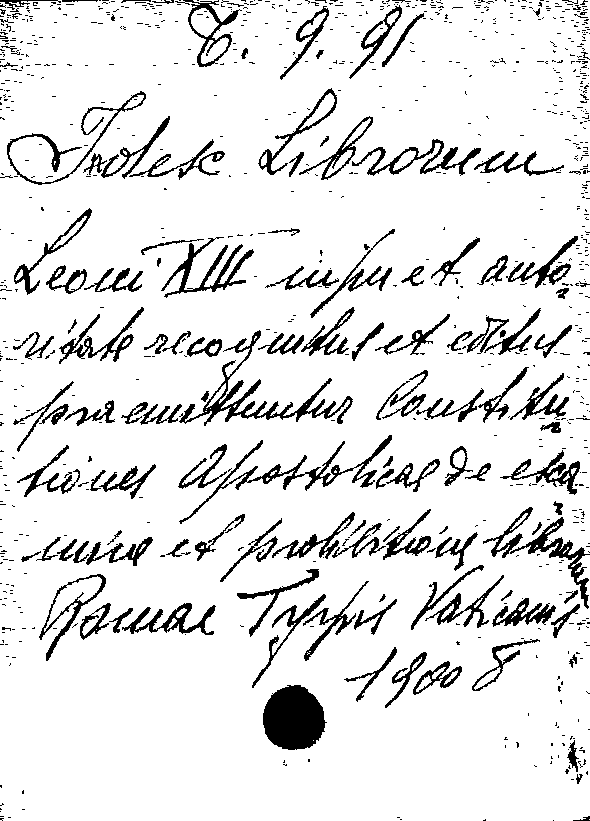 T. 9. 91
Index Librorum
Leoni XIII injsu et auto-
ritate recognitus et editus
praemittuntur Constitu-
tiones Apostolicae de exa-
mine et prohibitione librorum
Romae Typis Vaticanis
1900 8